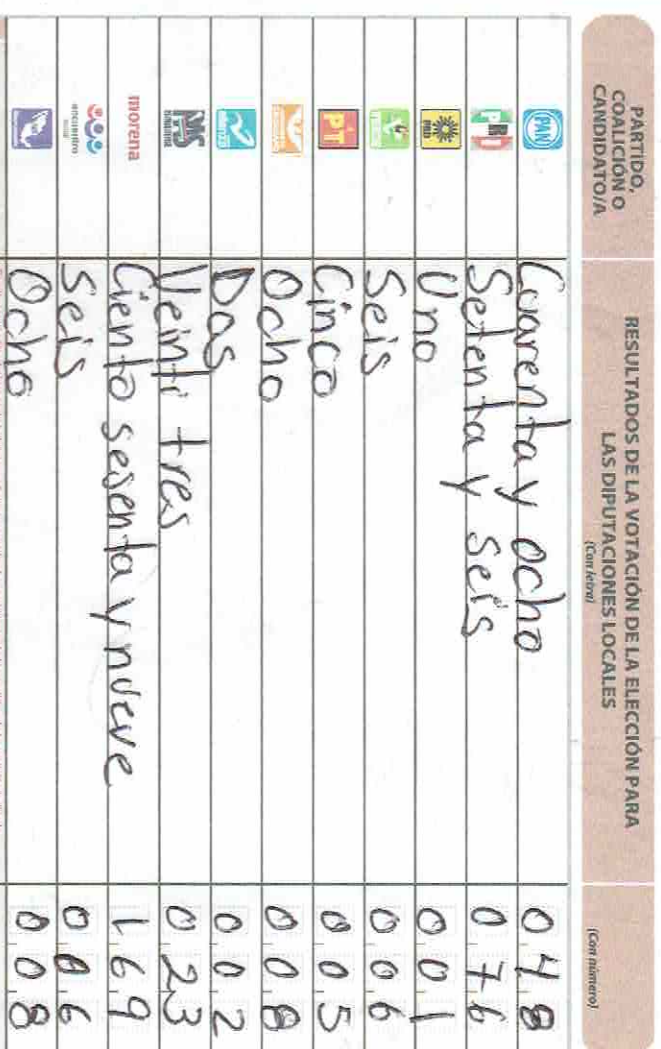 PARTIDO,
COALICIÓN O
CANDIDATO/A
RESULTADOS DE LA VOTACIÓN DE LA ELECCIÓN PARA
LAS DIPUTACIONES LOCALES
(Con letra)
(Con número)
PAN Cuarenta y ocho 048
PRI Setenta y seis 076
PRD Uno 001
VERDE Seis 006
PT Cinco 005
Ocho 008
Dos 002
MS Veinti tres 023
morena Ciento sesenta y nueve 169
encuentro social Seis 006
Ocho 008